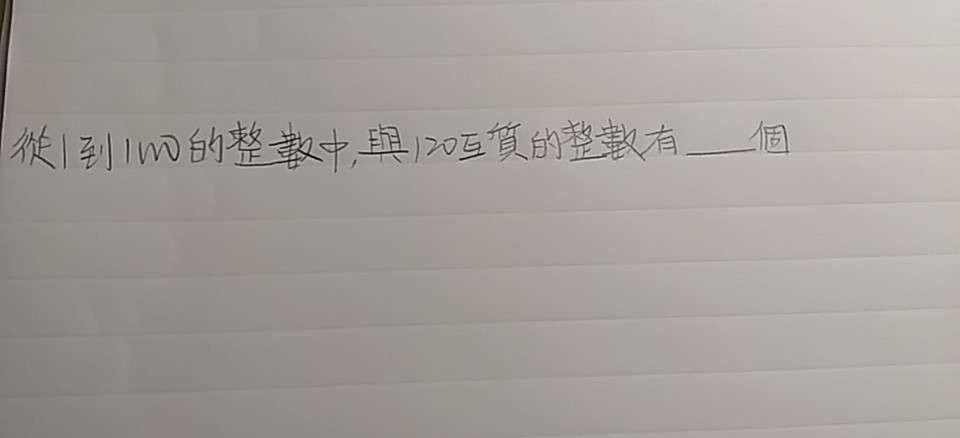 從1到1000的整數中,與120互質的整數有___個